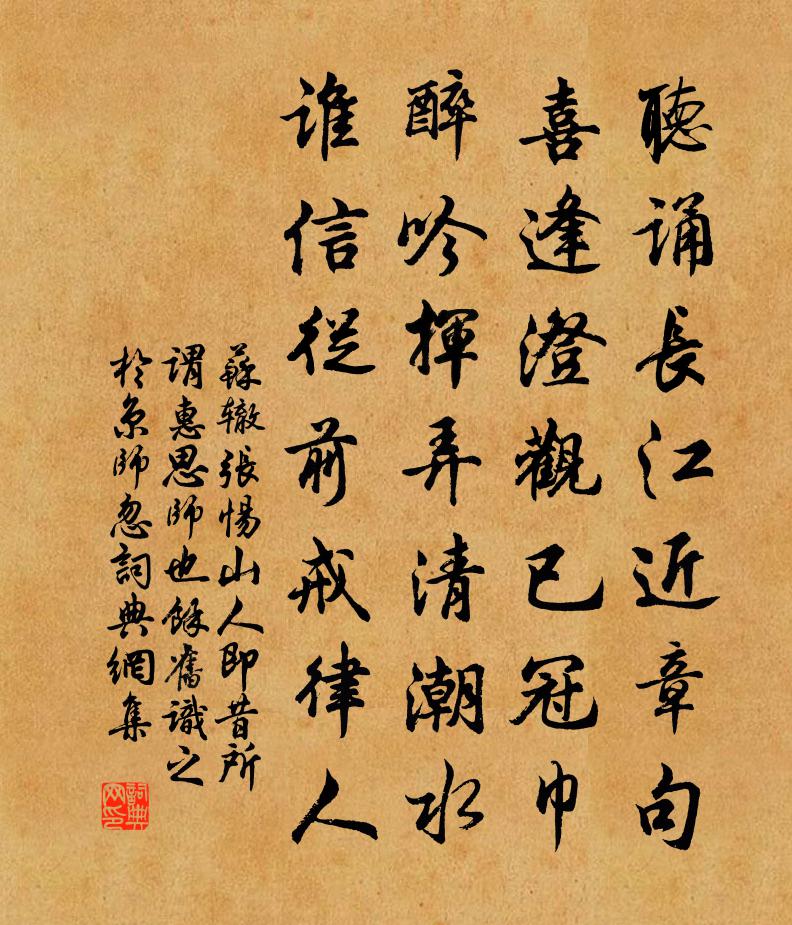 聽誦長江近章句
喜逢澄觀已冠巾
醉吟揮弄清潮水
誰信從前戒律人
蘇辙張惕山人即昔所
謂惠思師也餘舊識之
於京師忽詞典網集
詞典网印